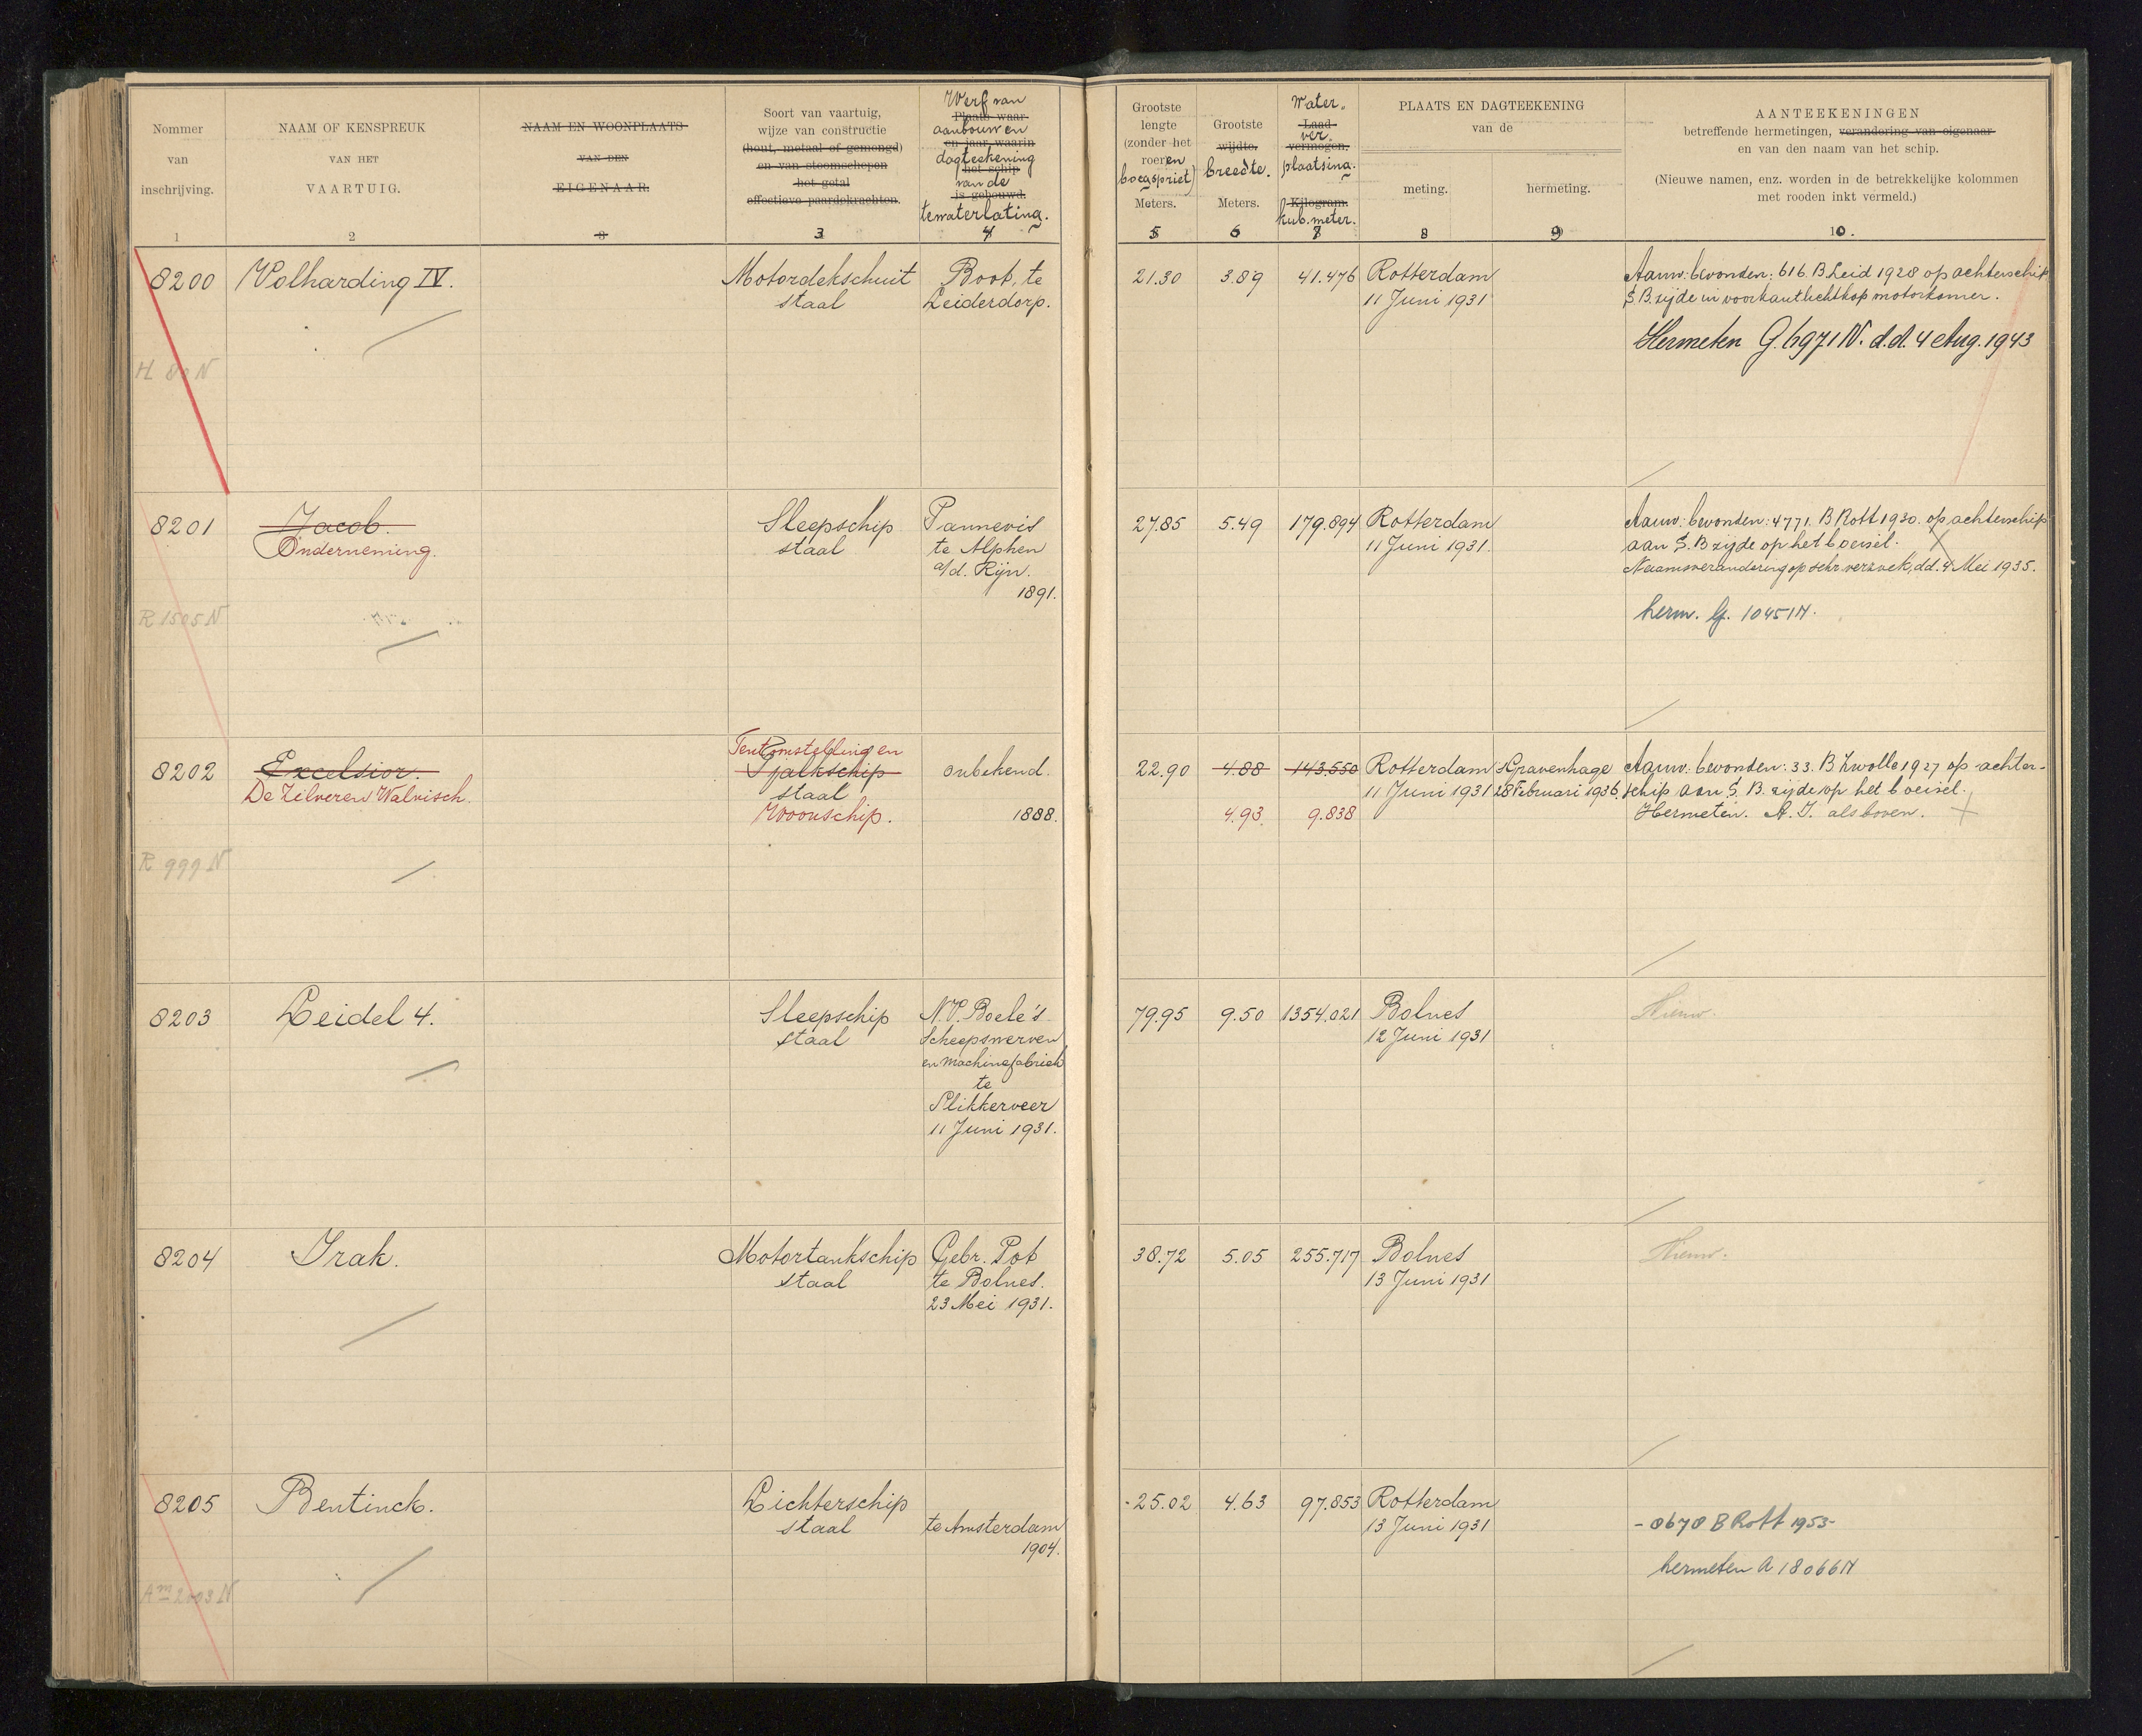 Nommer
van
inschrijving.
1
NAAM OF KENSPREUK
VAN HET
VAARTUIG.
2
NAAM EN WOONPLAATS
VAN DEN
EIGENAAR.
3
Soort van vaartuig,
wijze van constructie
(hout, metaal of gemengd)
en van stoomschepen
het getal
effectieve paardekrachten.
3
Werf van
Plaats waar
aanbouw en
en jaar waarin
dagteekening
het schip
van de
is gebouwd.
tewaterlating.
4
Grootste
lengte
(zonder het
roer en
boegspriet)
Meters.
5
Grootste
wijdte.
breedte.
Meters.
6
Water.
Laad
ver.
vermogen.
plaatsing.
Kilogram.
kub. meter.
7
PLAATS EN DAGTEEKENING
van de
meting.
8
hermeting.
9
AANTEEKENINGEN
betreffende hermetingen, verandering van eigenaar
en van den naam van het schip.
(Nieuwe namen, enz. worden in de betrekkelijke kolommen
met rooden inkt vermeld.)
10.
8200
H 80 N
Volharding IV.
Motordekschuit
staal
Boot, te
Leiderdorp.
21.30
3.89
41.476
Rotterdam
11 Juni 1931
Aanw: bevonden: 616 B Leid 1928 op achterschip
S.B. zijde in voorkant lichtkap motorkamer.
Hermeten G. 6971 N. d.d. 4 Aug. 1943
8201
R 1505 N
Jacob.
Onderneming.
Sleepschip
staal
Pannevis
te Alphen
a/d. Rijn.
1891.
27.85
5.49
179.894
Rotterdam
11 Juni 1931.
Aanw: bevonden: 4771. B Rott 1930. op achterschip
aan S.B zijde op het boeisel.
Naamsverandering op schr. verzoek, dd. 4 Mei 1935.
herm. G. 10451N.
8202
R 999 N
Excelsior.
De Zilveren Walvisch.
Tentoonstelling en
Tjalkschip
staal
Woonschip.
onbekend.
1888.
22.90
4.88
143.550
4.93
9.838
Rotterdam
11 Juni 1931
s Gravenhage
28 Februari 1936.
Aanw: bevonden: 33. B Zwolle 1927 op achter-
schip aan S. B. zijde op het boeisel.
Hermeten. A. I. als boven.
8203
Leidel 4.
Sleepschip
staal
N.V. Boele's
Scheepswerven
en Machinefabriek
te
Slikkerveer
11 Juni 1931.
79.95
9.50
1354.021
Bolnes
12 Juni 1931
Nieuw.
8204
Irak.
Motortankschip
staal
Gebr. Pot
te Bolnes.
23 Mei 1931.
38.72
5.05
255.717
Bolnes
13 Juni 1931
Nieuw.
8205
Am 2003 N
Bentinck.
Lichterschip
staal
te Amsterdam
1904.
25.02
4.63
97.853
Rotterdam
13 Juni 1931
- 8670 B Rott 1953-
hermeten A 18066N